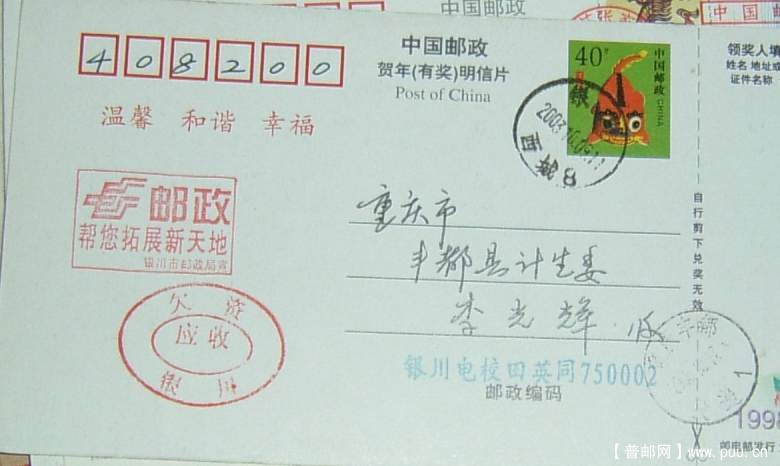 中国邮政
408200
中国邮政
贺年(有奖)明信片
Post of China
40分
中国邮政
CHINA
领奖人填
姓名 地址或
证件名称
温馨 和谐 幸福
2003.10.09.11
银
邮政
帮您拓展新天地
银川市邮政局宣
重庆市
丰都县计生委
李光辉
欠资
应收
银川
银川电校四英同750002
邮政编码
自行剪下兑奖无效
1998
邮电部发行
【普邮网】www.puu.cn